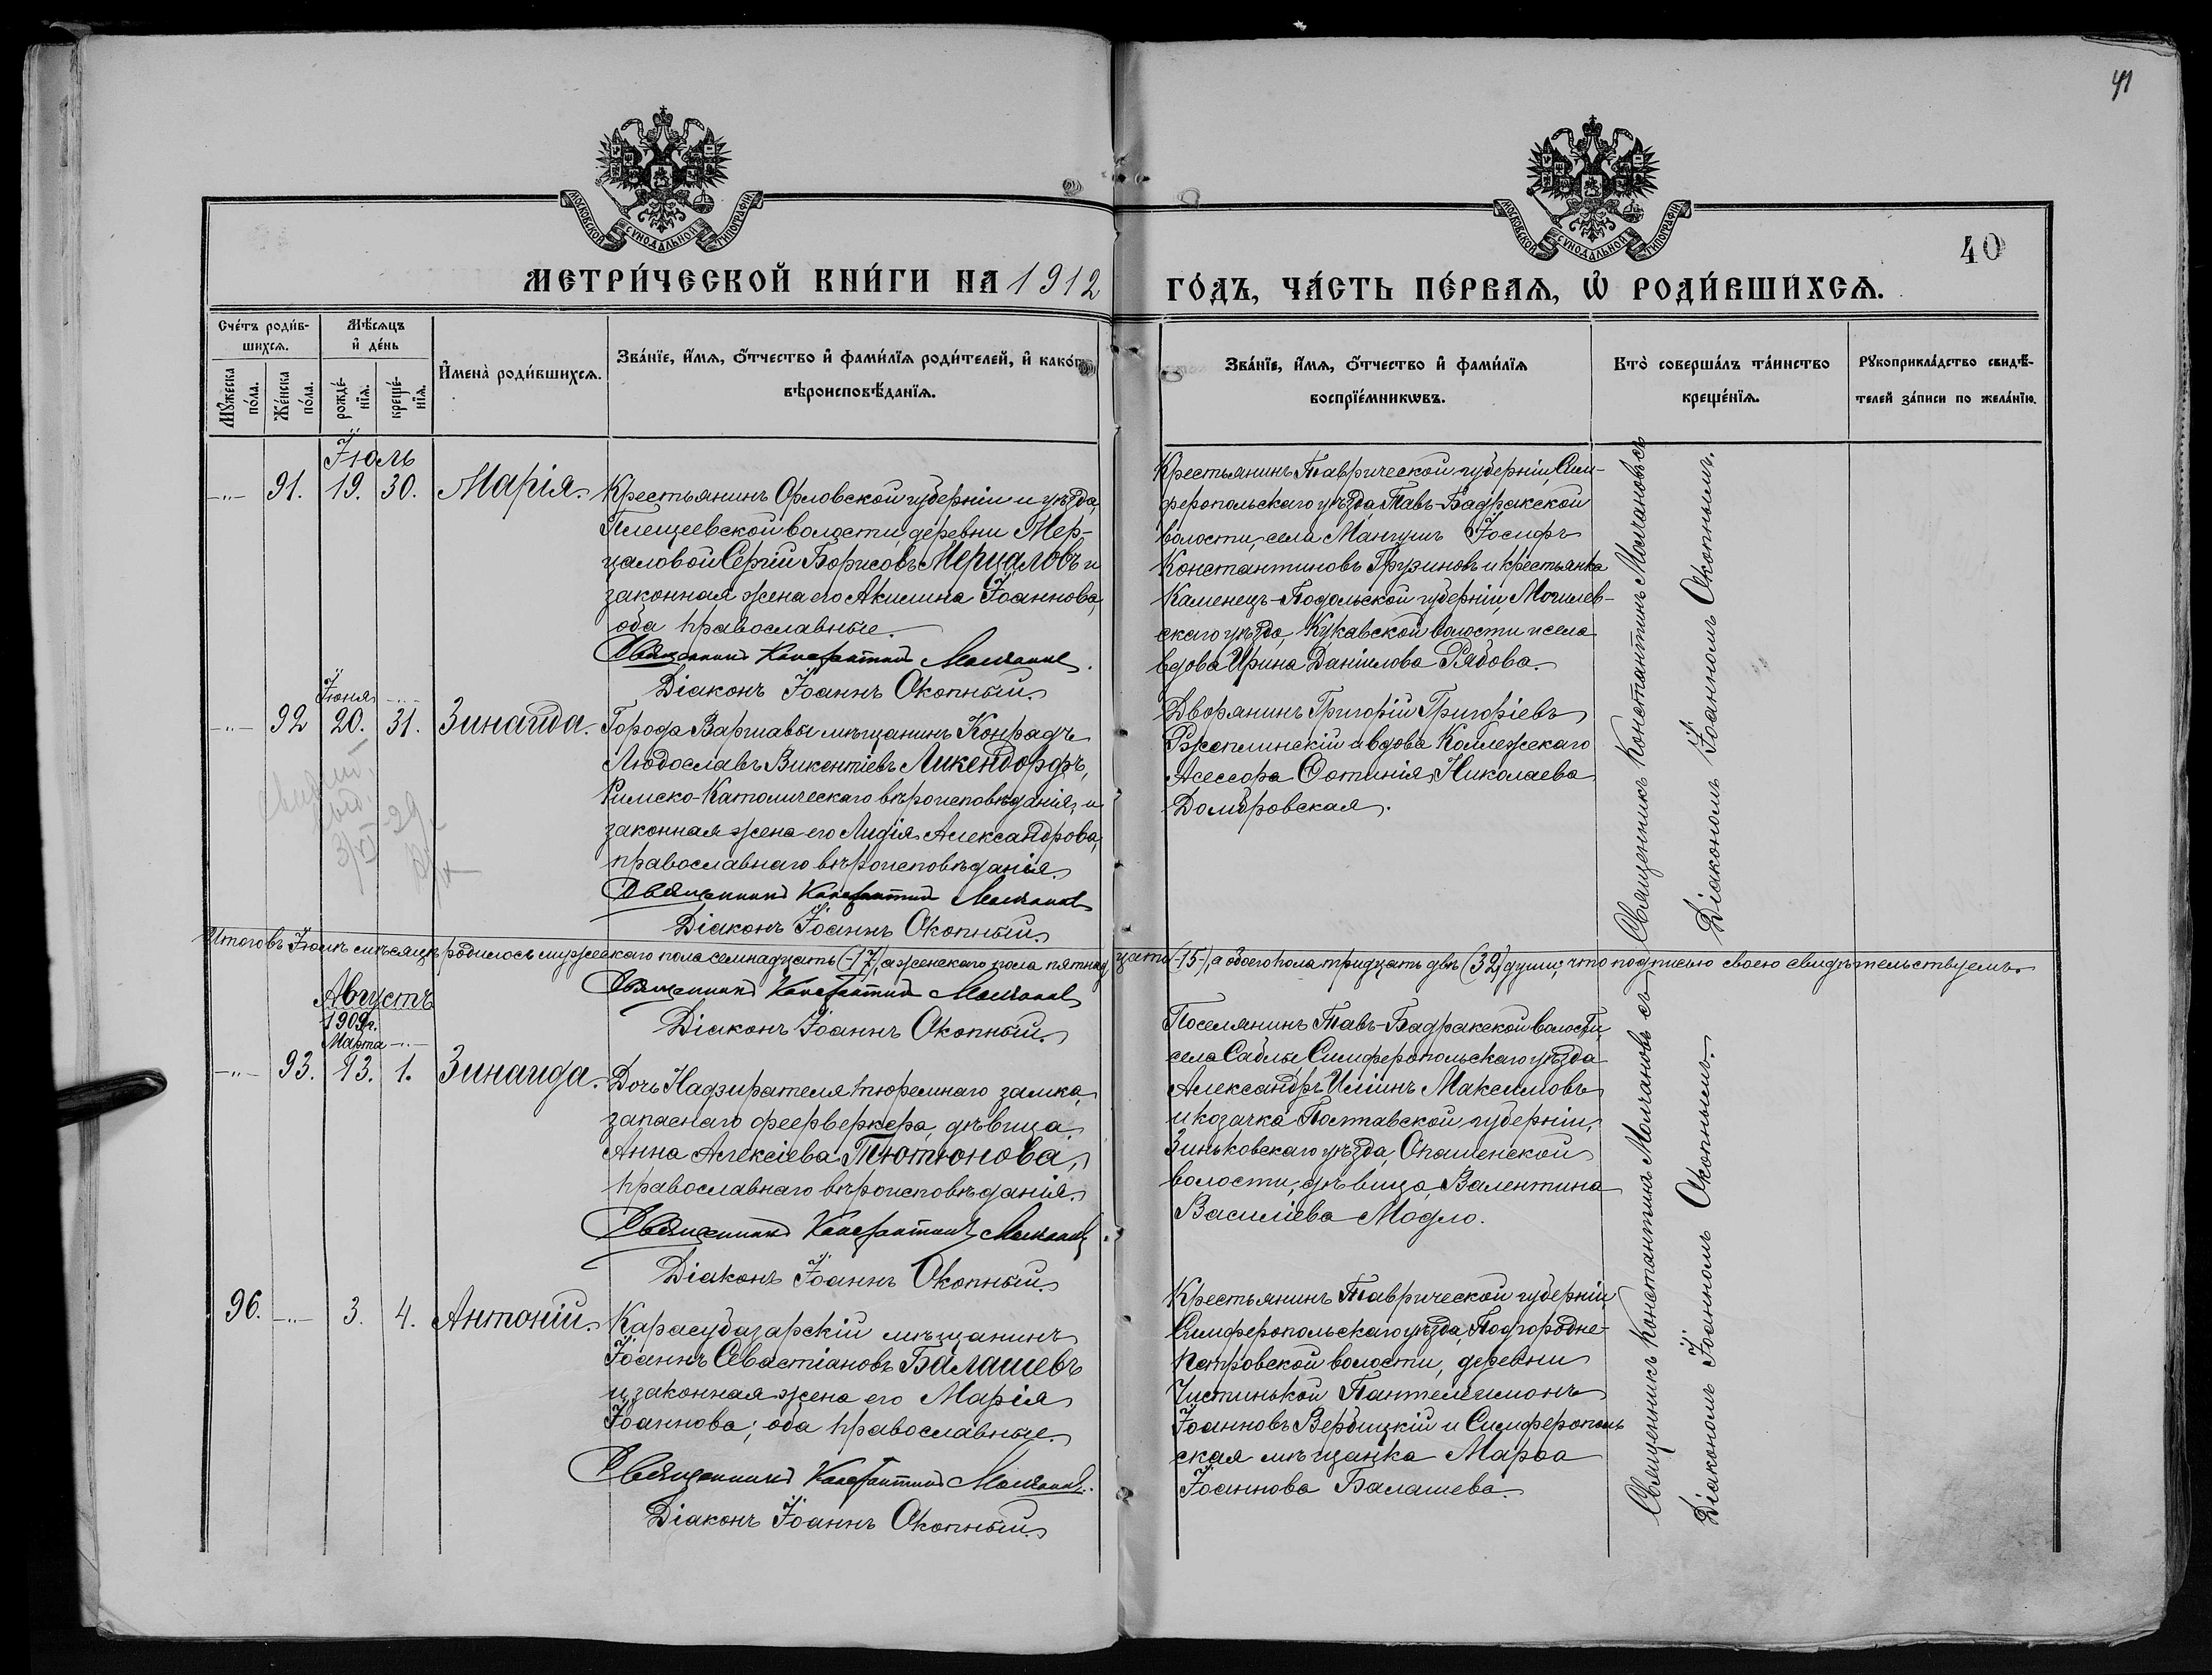 41
МОСКОВСКОЙ СУНОДАЛЬНОЙ ТИПОГРАФІИ
МОСКОВСКОЙ СУНОДАЛЬНОЙ ТИПОГРАФІИ
40
МЕТРИ́ЧЕСКОЙ КНИ́ГИ НА 1912 ГО́ДЪ, ЧА́СТЬ ПЕ́РВАѦ, Ѡ҆ РОДИ́ВШИХСѦ.
Сче́тъ роди́в-
шихсѧ.
Мꙋ́жеска
по́ла.
Же́нска
по́ла.
Мѣ́сѧцъ
и҆ де́нь
рожде́-
нїѧ.
креще́-
нїѧ.
И҆мена̀ роди́вшихсѧ.
Зва́нїе, и҆́мѧ, ѻ҆́тчество и҆ фами́лїѧ роди́телей, и҆ како́гѡ
вѣроисповѣ́данїѧ.
Зва́нїе, и҆́мѧ, ѻ҆́тчество и҆ фами́лїѧ
воспрїе́мникѡвъ.
Кто̀ соверша́лъ та́инство
креще́нїѧ.
Рꙋкоприкла́дство свидѣ́-
телей за́писи по жела́нїю.
Іюль
-"- 91. 19. 30. Марія.
Крестьянинъ Орловской губерніи и уѣзда,
Плещеевской волости, деревни Мер-
цаловой Сергій Борисовъ Мерцаловъ и
законная жена его Акилина Іоаннова,
оба православные.
Священникъ Константинъ Молчановъ.
Діаконъ Іоаннъ Окопный.
Крестьянинъ Таврической губерніи, Сим-
феропольскаго уѣзда, Тавъ-Бадракской
волости, села Мангушъ Іосифъ
Константиновъ Грузиновъ и крестьянка
Каменецъ-Подольской губерніи, Могилев-
скаго уѣзда, Кукавской волости и села
вдова Ирина Даніилова Рябова.
Священникъ Константинъ Молчановъ съ
Діакономъ Іоанномъ Окопнымъ.
Іюня
-"- 92 20. 31. Зинаида.
Города Варшавы мѣщанинъ Конрадъ
Людославъ Викентіевъ Ликендорфъ,
Римско-Католическаго вѣроисповѣданія, и
законная жена его Лидія Александрова,
православнаго вѣроисповѣданія.
Священникъ Константинъ Молчановъ
Діаконъ Іоаннъ Окопный.
Дворянинъ Григорій Григоріевъ
Ржеплинскій и вдова Коллежскаго
Асессора Фотинія Николаева
Домбровская.
Итого въ Іюлѣ мѣсяцѣ родилось мужескаго пола семнадцать (-17), а женскаго пола пятнадцать (-15-), а обоего пола тридцать двѣ (32) души; что подписью своею свидѣтельствуемъ.
Священникъ Константинъ Молчановъ
Діаконъ Іоаннъ Окопный.
Августъ
1909г.
Марта -"-
-"- 93. 13. 1. Зинаида.
Дочь Надзирателя тюремнаго замка,
запаснаго феерверкера, дѣвица
Анна Алексіева Тютюнова,
православнаго вѣроисповѣданія.
Священникъ Константинъ Молчановъ.
Діаконъ Іоаннъ Окопный.
Поселянинъ Тавъ-Бадракской волости,
села Саблы, Симферопольскаго уѣзда
Александръ Иліинъ Максимовъ
и козачка Полтавской губерніи,
Зиньковскаго уѣзда, Опошенской
волости, дѣвица Валентина
Василіева Модло.
Священникъ Константинъ Молчановъ съ
Діакономъ Іоанномъ Окопнымъ.
96. -"- 3. 4. Антоній.
Карасубазарскій мѣщанинъ
Іоаннъ Севастіановъ Балашевъ
и законная жена его Марія
Іоаннова; оба православные.
Священникъ Константинъ Молчановъ.
Діаконъ Іоаннъ Окопный.
Крестьянинъ Таврической губерніи
Симферопольскаго уѣзда, Подгородне-
Петровской волости, деревни
Чистинькой Пантелеимонъ
Іоанновъ Вербицкій и Симферополь
ская мѣщанка Марѳа
Іоаннова Балашева.